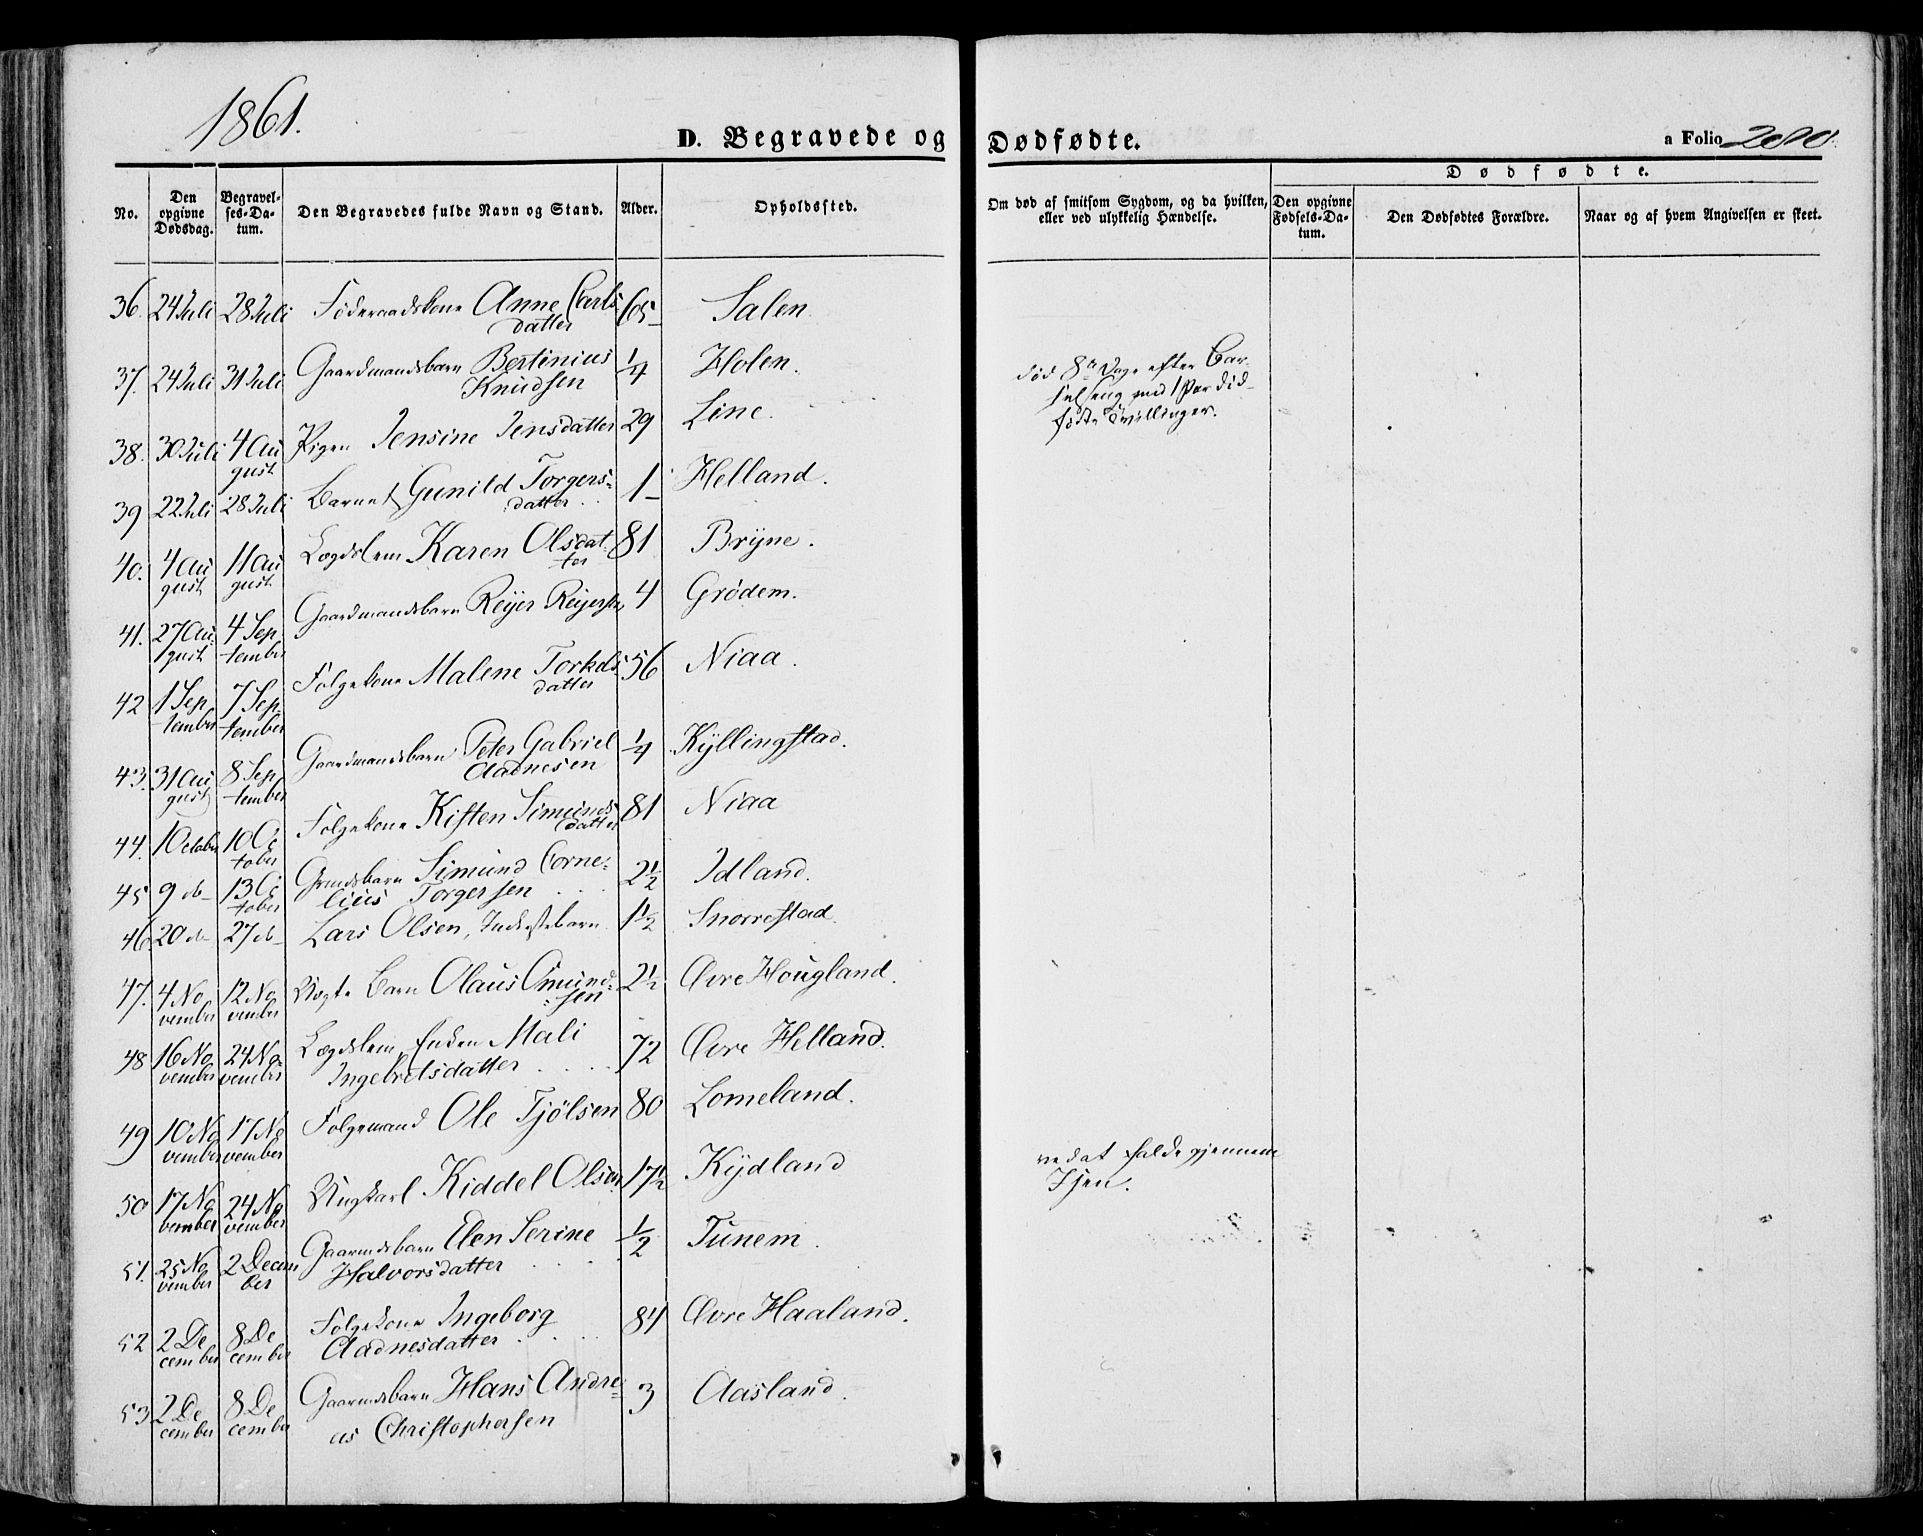 1861.
D. Begravede og Dødfødte.
a Folio
No.
Den opgivne Dødsdag.
Begravelses-Datum.
Den Begravedes fulde Navn og Stand.
Alder.
Opholdssted.
Om død af smitsom Sygdom, og da hvilken, eller ved ulykkelig Hændelse.
Dødfødte.
Den opgivne Fødsels-Datum.
Den Dødfødtes Forældre.
Naar og af hvem Angivelsen er skeet.
36. 24 Juli 28 Juli Føderaadskone Anne Carlsdatter 65 Salen.
37. 24 Juli 31 Juli Gaardmandsbarn Bertinius Knudsen 1/4 Holen.
38. 30 Juli 4 August Pigen Jensine Jensdatter 29 Line. død 8 Dage efter Barselseng med 1 Par dødfødte Tvillinger.
39 22 Juli 28 Juli Barnet Gunild Torgersdatter 1 Helland.
40. 4 August 11 August Lægdslem Karen Olsdatter 81 Bryne.
41. 27 August 4 September Gaardmandsbarn Reijer Reijersen 4 Grødem.
42 1 September 7 September Folgekone Malene Torkelsdatter 56 Niaa.
43. 31 August 8 September Gaardmandsbarn Peter Gabriel Aadnesen 1/4 Kyllingstad.
44. 1 October 10 October Folgekone Kisten Simundsdatter 81 Niaa
45 9 do 13 October Grmdsbarn Simund Cornelius Torgersen 2 1/2 Idland.
46 20 do 27 do Lars Olsen, Inderstebarn 1 1/2 Snorrestad.
47. 4 November 12 November Uægte Barn Olaus Omundsen 2 1/2 Øvre Hougland.
48 16 November 24 November Lægdslem Enken Mali Ingebretsdatter 72 Øvre Helland.
49 10 November 17 November Folgemand Ole Tjølsen 80 Lomeland.
50 17 November 24 November Ungkarl Kiddel Olsen 17 1/2 Kydland ved at falde gjennem Isen.
51. 25 November 2 December Gaarmdsbarn Elen Serine Halvorsdatter 1/2 Tunem.
52 2 December 8 December Folgekone Ingeborg Aadnesdatter 84 Øvre Haaland.
53 2 December 8 December Gaarmdsbarn Hans Andreas Christophersen 3 Aasland.